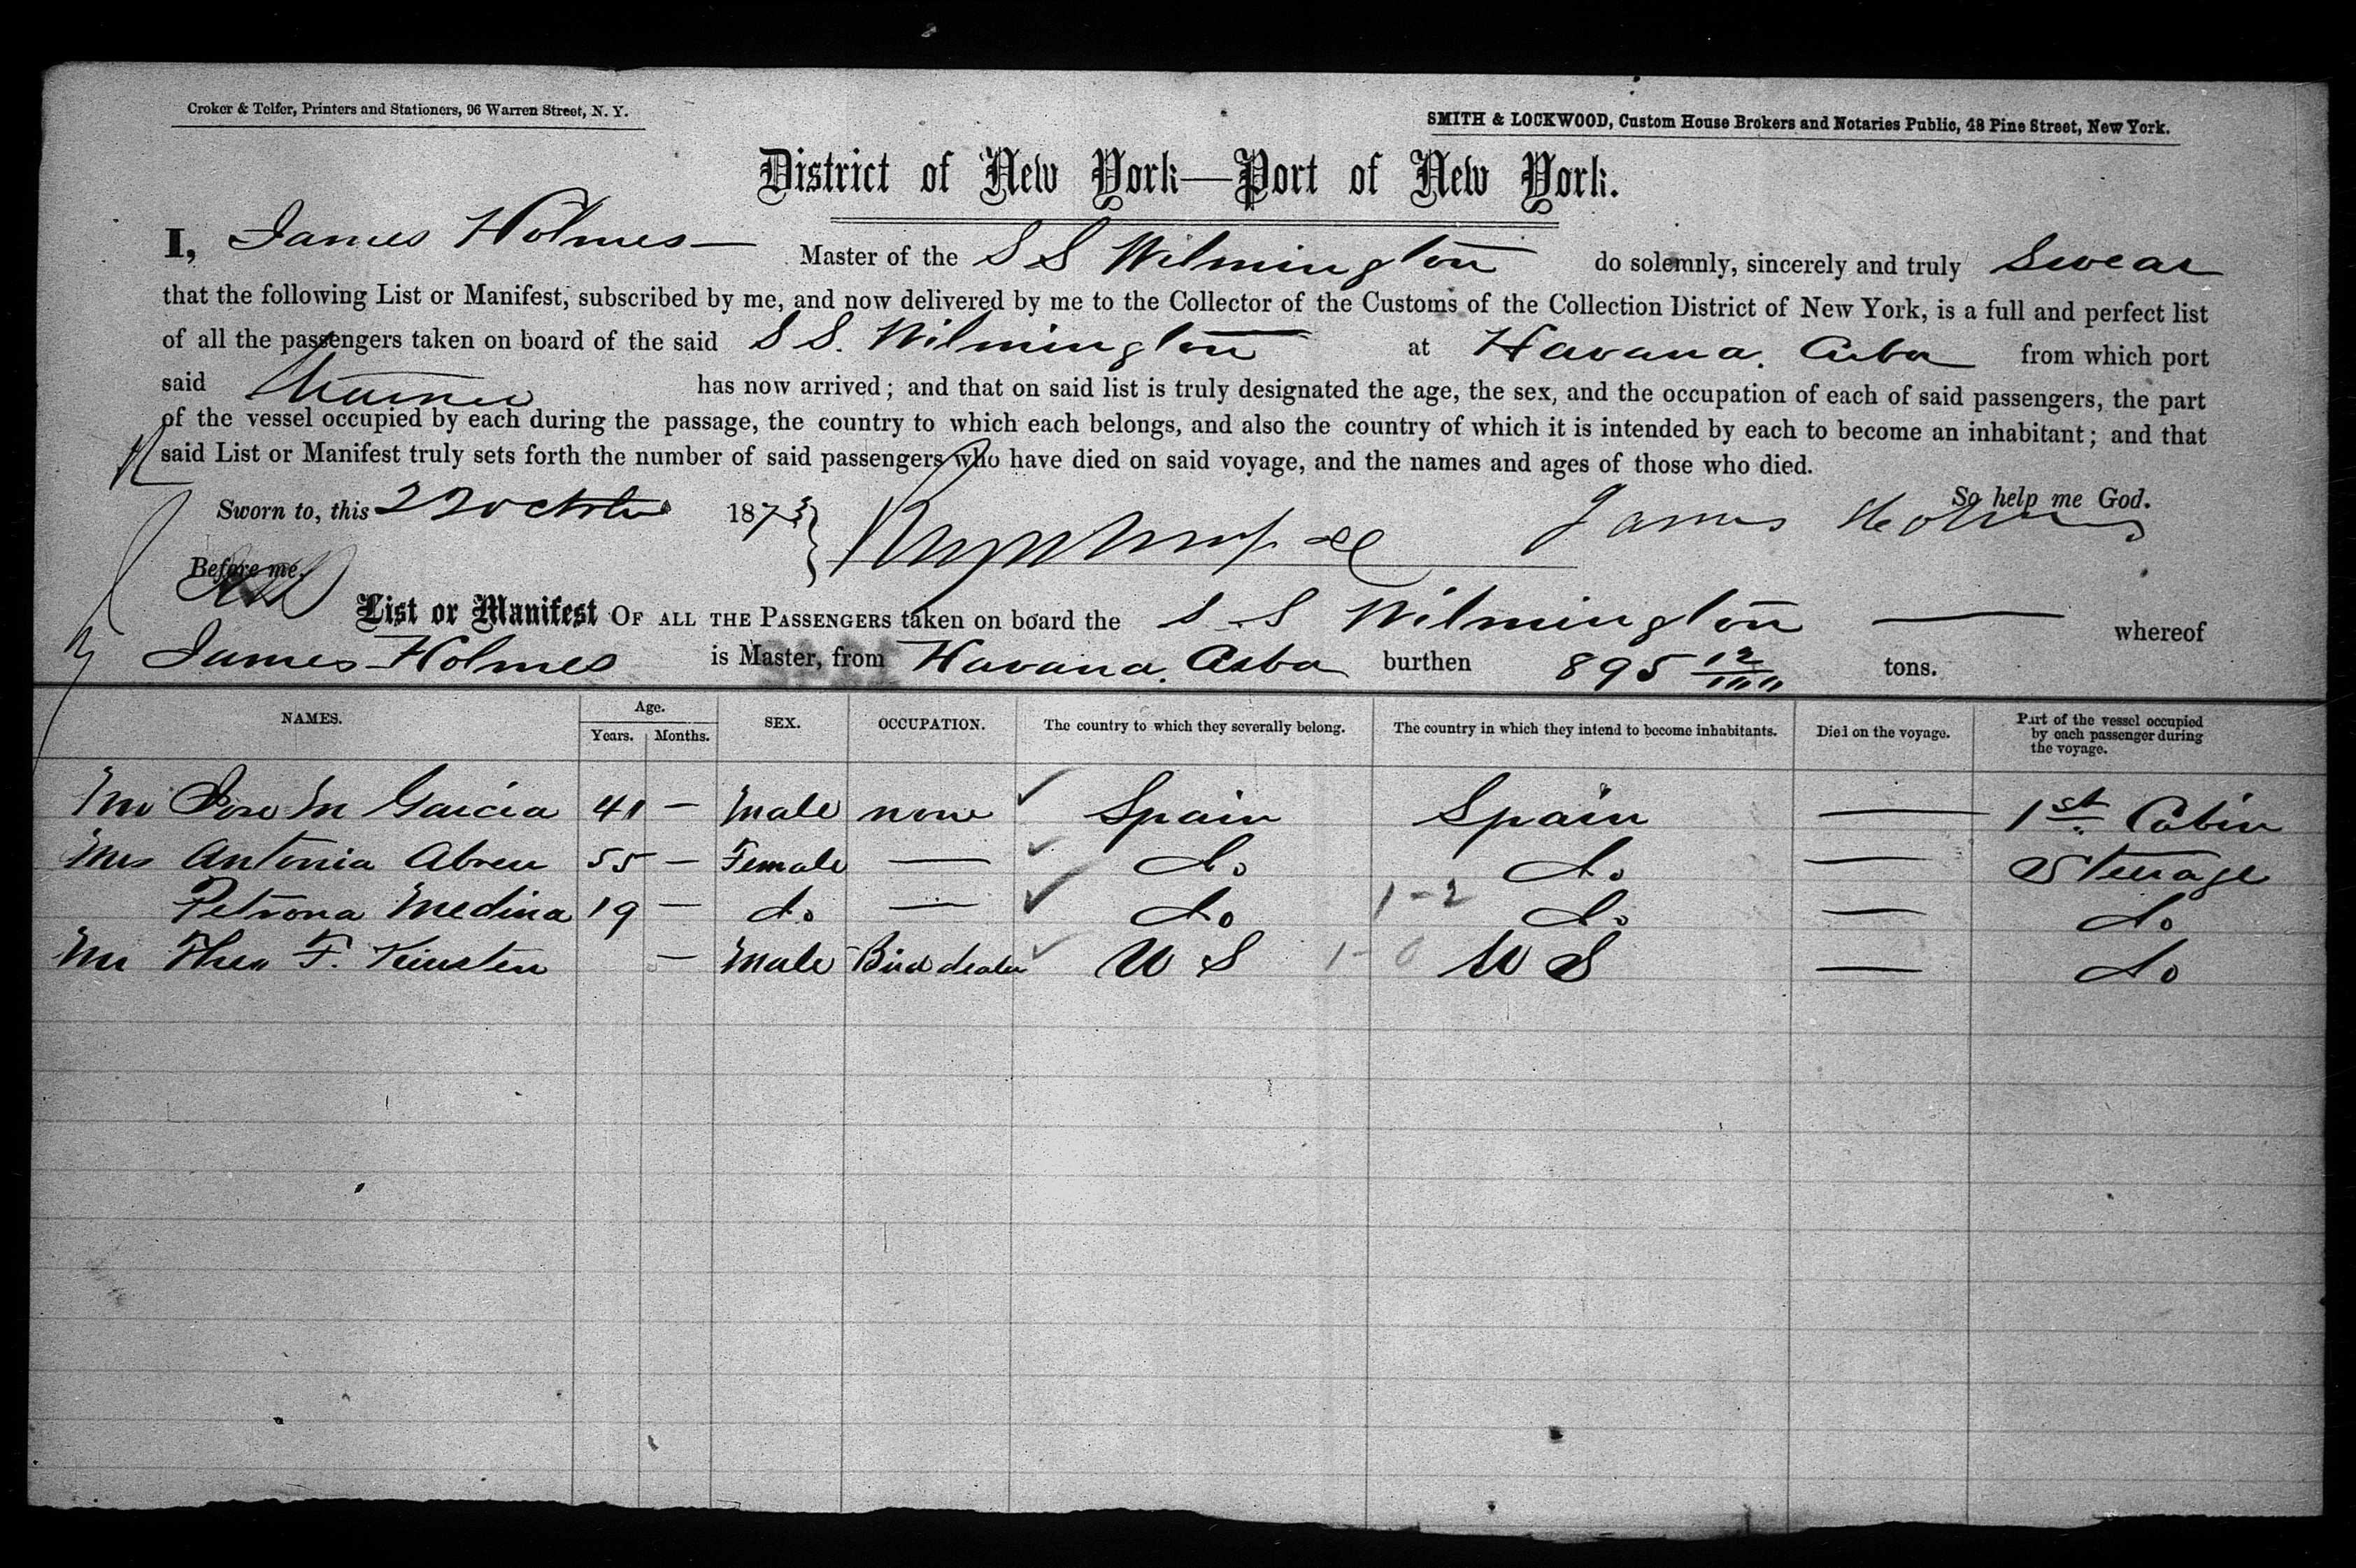 Croker & Telfer, Printers and Stationers, 96 Warren Street, N. Y.
SMITH & LOCKWOOD, Custom House Brokers and Notaries Public, 48 Pine Street, New York.
District of New York—Port of New York.
I, James Holmes — Master of the S S Wilmington do solemnly, sincerely and truly Swear
that the following List or Manifest, subscribed by me, and now delivered by me to the Collector of the Customs of the Collection District of New York, is a full and perfect list
of all the passengers taken on board of the said S S. Wilmington at Havana. Cuba from which port
said Steamer has now arrived; and that on said list is truly designated the age, the sex, and the occupation of each of said passengers, the part
of the vessel occupied by each during the passage, the country to which each belongs, and also the country of which it is intended by each to become an inhabitant; and that
said List or Manifest truly sets forth the number of said passengers who have died on said voyage, and the names and ages of those who died.
So help me God.
Sworn to, this 22 October 1873 } James Holmes
Before me,
List or Manifest OF ALL THE PASSENGERS taken on board the S. S Wilmington — whereof
James Holmes is Master, from Havana. Cuba burthen 895 12/100 tons.
NAMES. Age. Years. Months. SEX. OCCUPATION. The country to which they severally belong. The country in which they intend to become inhabitants. Died on the voyage. Part of the vessel occupied by each passenger during the voyage.
Mr Jose M Garcia 41 — Male none Spain Spain — 1st Cabin
Mrs Antonia Abreu 55 — Female — do do — Steerage
Petrona Medina 19 — do — do 1-2 do — do
Mr Theo F. — Male Bird dealer U S 1-0 U S — do